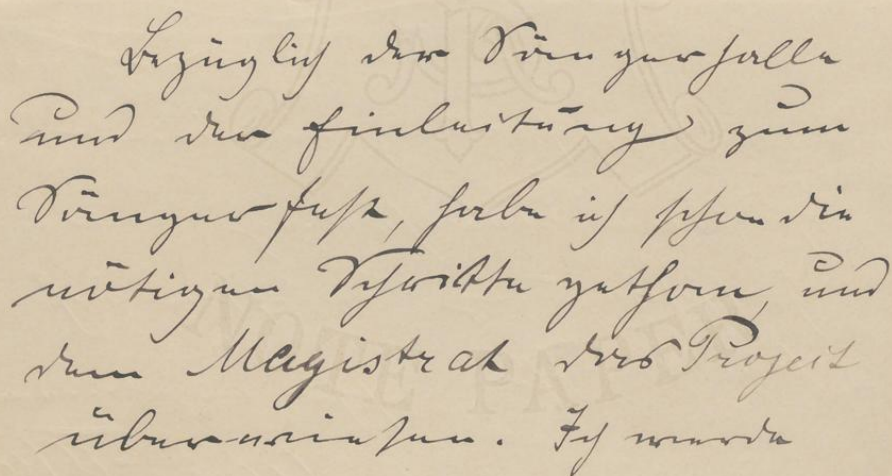 Bezüglich der Sängerhalle
und der Einleitung zum
Sängerfest, habe ich schon die
nötigen Schritte gethan, und
dem Magistrat das Project
überwiesen. Ich werde
NOTE PAPER